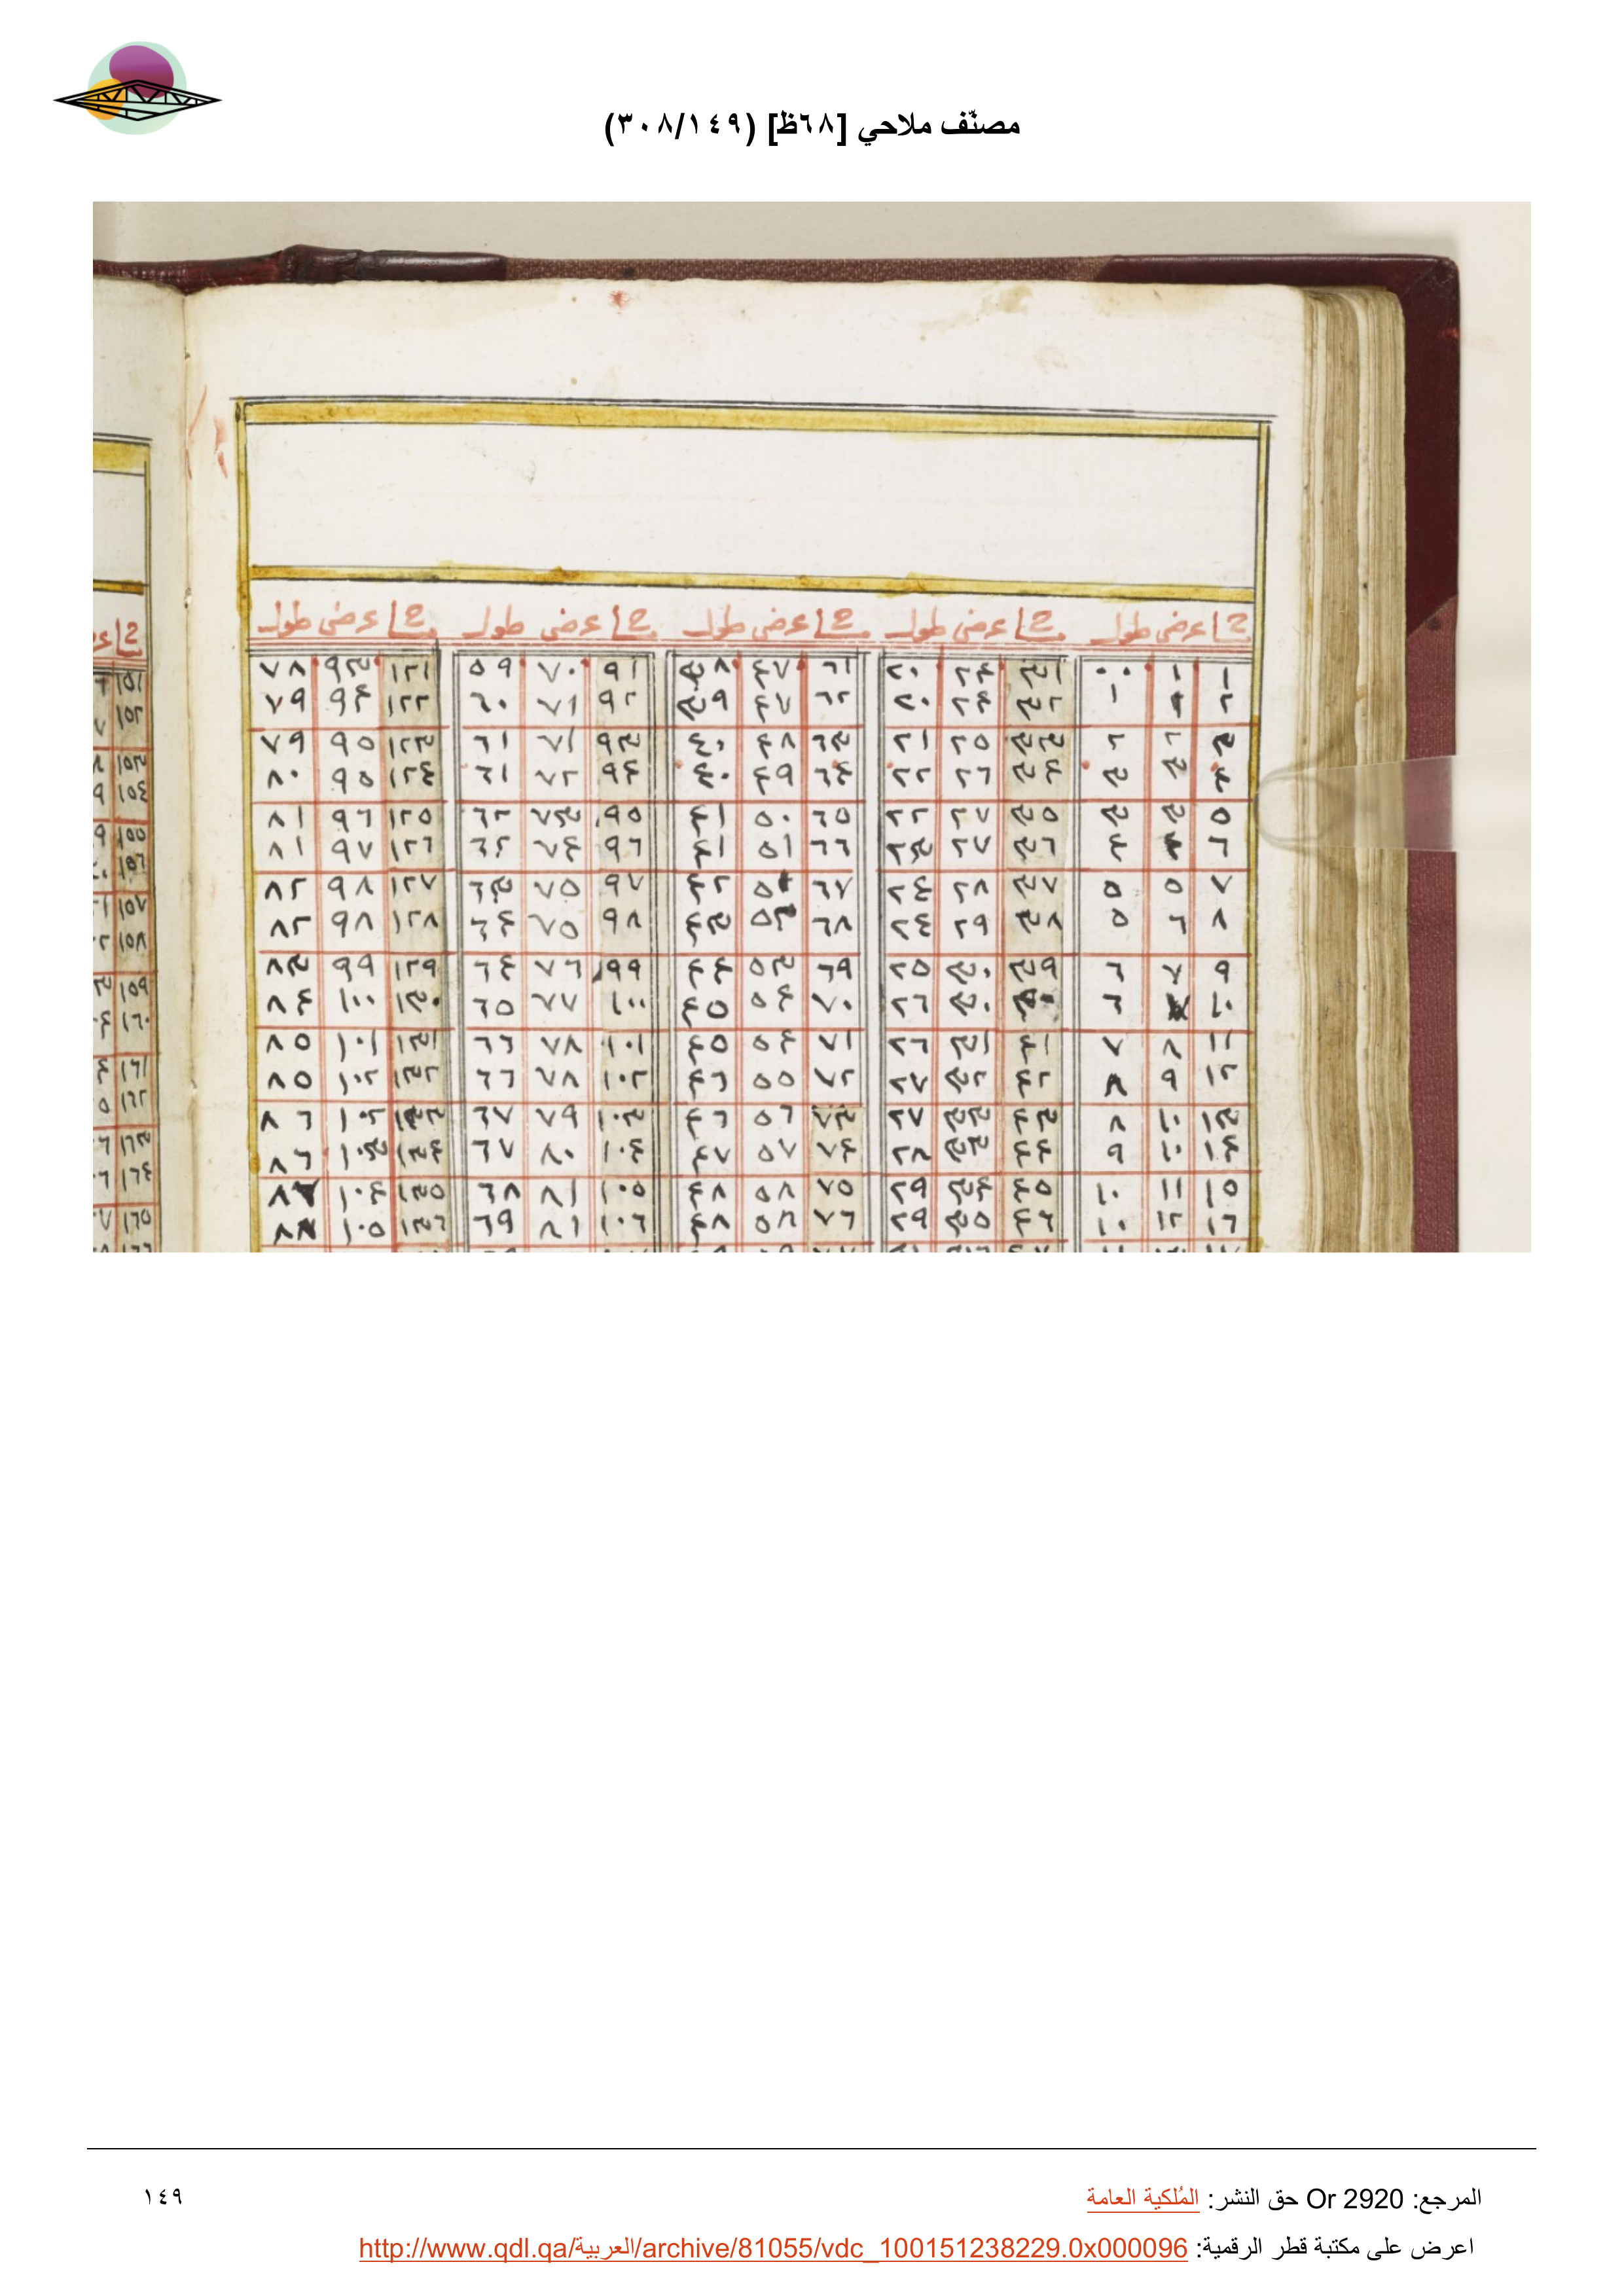 مصنّف ملاحي [٦٨ظ] (٣٠٨/١٤٩)
عرض طول عرض طول عرض طول عرض طول عرض طول
١ ١ ٠٠ ٣١ ٢٤ ٢٠ ٦١ ٤٧ ٣٨ ٩١ ٧٠ ٥٩ ١٢١ ٩٣ ٧٨
٢ ١ ١ ٣٢ ٢٤ ٢٠ ٦٢ ٤٧ ٣٩ ٩٢ ٧١ ٦٠ ١٢٢ ٩٤ ٧٩
٣ ٢ ٢ ٣٣ ٢٥ ٢١ ٦٣ ٤٨ ٤٠ ٩٣ ٧١ ٦١ ١٢٣ ٩٥ ٧٩
٤ ٣ ٣ ٣٤ ٢٦ ٢٢ ٦٤ ٤٩ ٤٠ ٩٤ ٧٢ ٦١ ١٢٤ ٩٥ ٨٠
٥ ٣ ٣ ٣٥ ٢٧ ٢٢ ٦٥ ٥٠ ٤١ ٩٥ ٧٣ ٦٢ ١٢٥ ٩٦ ٨١
٦ ٤ ٤ ٣٦ ٢٧ ٢٣ ٦٦ ٥١ ٤١ ٩٦ ٧٤ ٦٢ ١٢٦ ٩٧ ٨١
٧ ٥ ٥ ٣٧ ٢٨ ٢٤ ٦٧ ٤٢ ٩٧ ٧٥ ٦٣ ١٢٧ ٩٨ ٨٢
٨ ٦ ٥ ٣٨ ٢٩ ٢٤ ٦٨ ٥٢ ٤٣ ٩٨ ٧٥ ٦٤ ١٢٨ ٩٨ ٨٢
٩ ٧ ٦ ٣٩ ٣٠ ٢٥ ٦٩ ٥٣ ٤٤ ٩٩ ٧٦ ٦٤ ١٢٩ ٩٩ ٨٣
١٠ ٦ ٣٠ ٢٦ ٧٠ ٥٤ ٤٥ ١٠٠ ٧٧ ٦٥ ١٣٠ ١٠٠ ٨٤
١١ ٨ ٧ ٤١ ٣١ ٢٦ ٧١ ٥٤ ٤٥ ١٠١ ٧٨ ٦٦ ١٣١ ١٠١ ٨٥
١٢ ٩ ٨ ٤٢ ٣٢ ٢٧ ٧٢ ٥٥ ٤٦ ١٠٢ ٧٨ ٦٦ ١٣٢ ١٠٢ ٨٥
١٣ ١٠ ٨ ٤٣ ٣٣ ٢٧ ٧٣ ٥٦ ٤٦ ١٠٣ ٧٩ ٦٧ ١٣٣ ١٠٢ ٨٦
١٤ ١٠ ٩ ٤٤ ٣٣ ٢٨ ٧٤ ٥٧ ٤٧ ١٠٤ ٨٠ ٦٧ ١٣٤ ١٠٣ ٨٦
١٥ ١١ ١٠ ٤٥ ٣٤ ٢٩ ٧٥ ٥٨ ٤٨ ١٠٥ ٨١ ٦٨ ١٣٥ ١٠٤ ٨٧
١٦ ١٢ ١٠ ٤٦ ٣٥ ٢٩ ٧٦ ٥٨ ٤٨ ١٠٦ ٨١ ٦٩ ١٣٦ ١٠٥ ٨٨
١٥١
١٥٢
١٥٣
١٥٤
١٥٥
١٥٦
١٥٧
١٥٨
١٥٩
١٦٠
١٦١
١٦٢
١٦٣
١٦٤
١٦٥
المرجع: Or 2920 حق النشر: المُلكية العامة
١٤٩
اعرض على مكتبة قطر الرقمية: http://www.qdl.qa/العربية/archive/81055/vdc_100151238229.0x000096